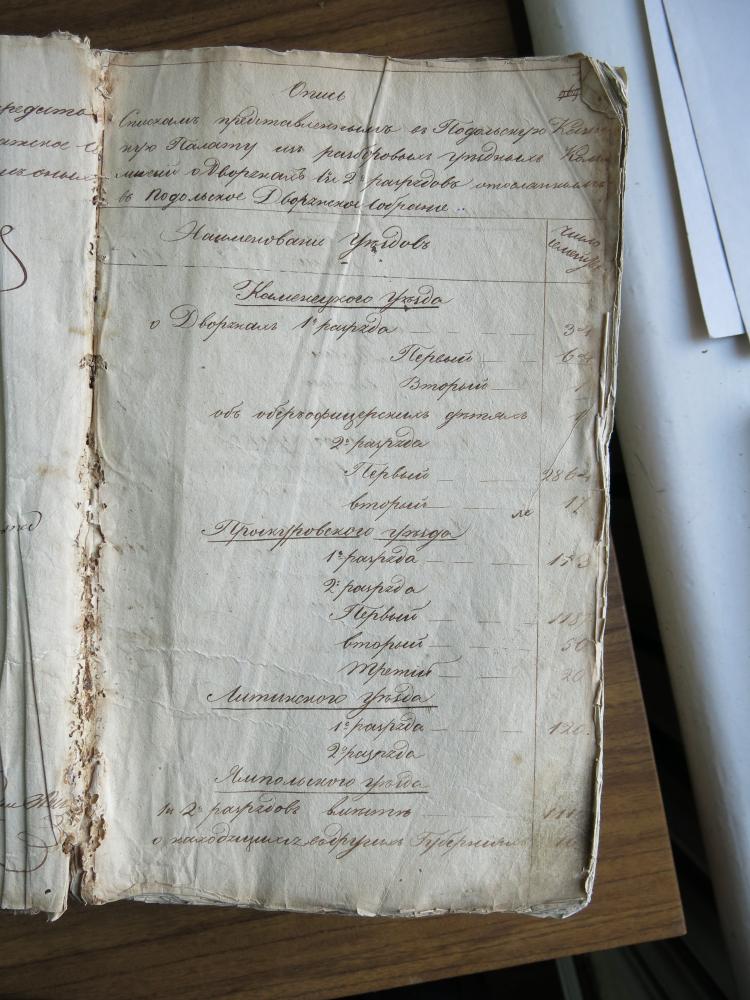 Опись
Спискамъ представленнымъ въ Подольскую Казен
ную Палату изъ разборовыхъ уѣздныхъ Коми
мисій о Дворянахъ 1 и 2 разрядовъ отосланныхъ
въ Подольское Дворянское собрание
Наименование Уѣздовъ
Число
Каменецкого Уѣзда
о Дворянахъ 1го разряда
Первый
Вторый 1
объ оберъофицерскихъ дѣтяхъ 1
2го разряда
Первый 286
вторый 17
Проскуровского уѣзда
1го разряда
2го разряда
Первый 118
вторый 50
третій 20
Литинского уѣзда
1го разряда 120
2го разряда
Ямпольского уѣзда
1и 2го разрядовъ вмѣстѣ 111
о находящихся въ другихъ Губерніяхъ